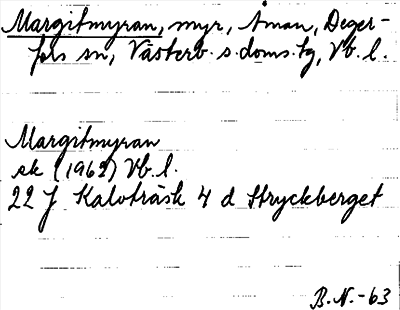 Margitmyran, myr, Åman, Deger-
fors sn, Västerb. s. doms. tg, Vb. l.
Margitmyran
ek (1962) Vb. l.
22 J Kalvträsk 4 d Stryckberget
B. N. -63